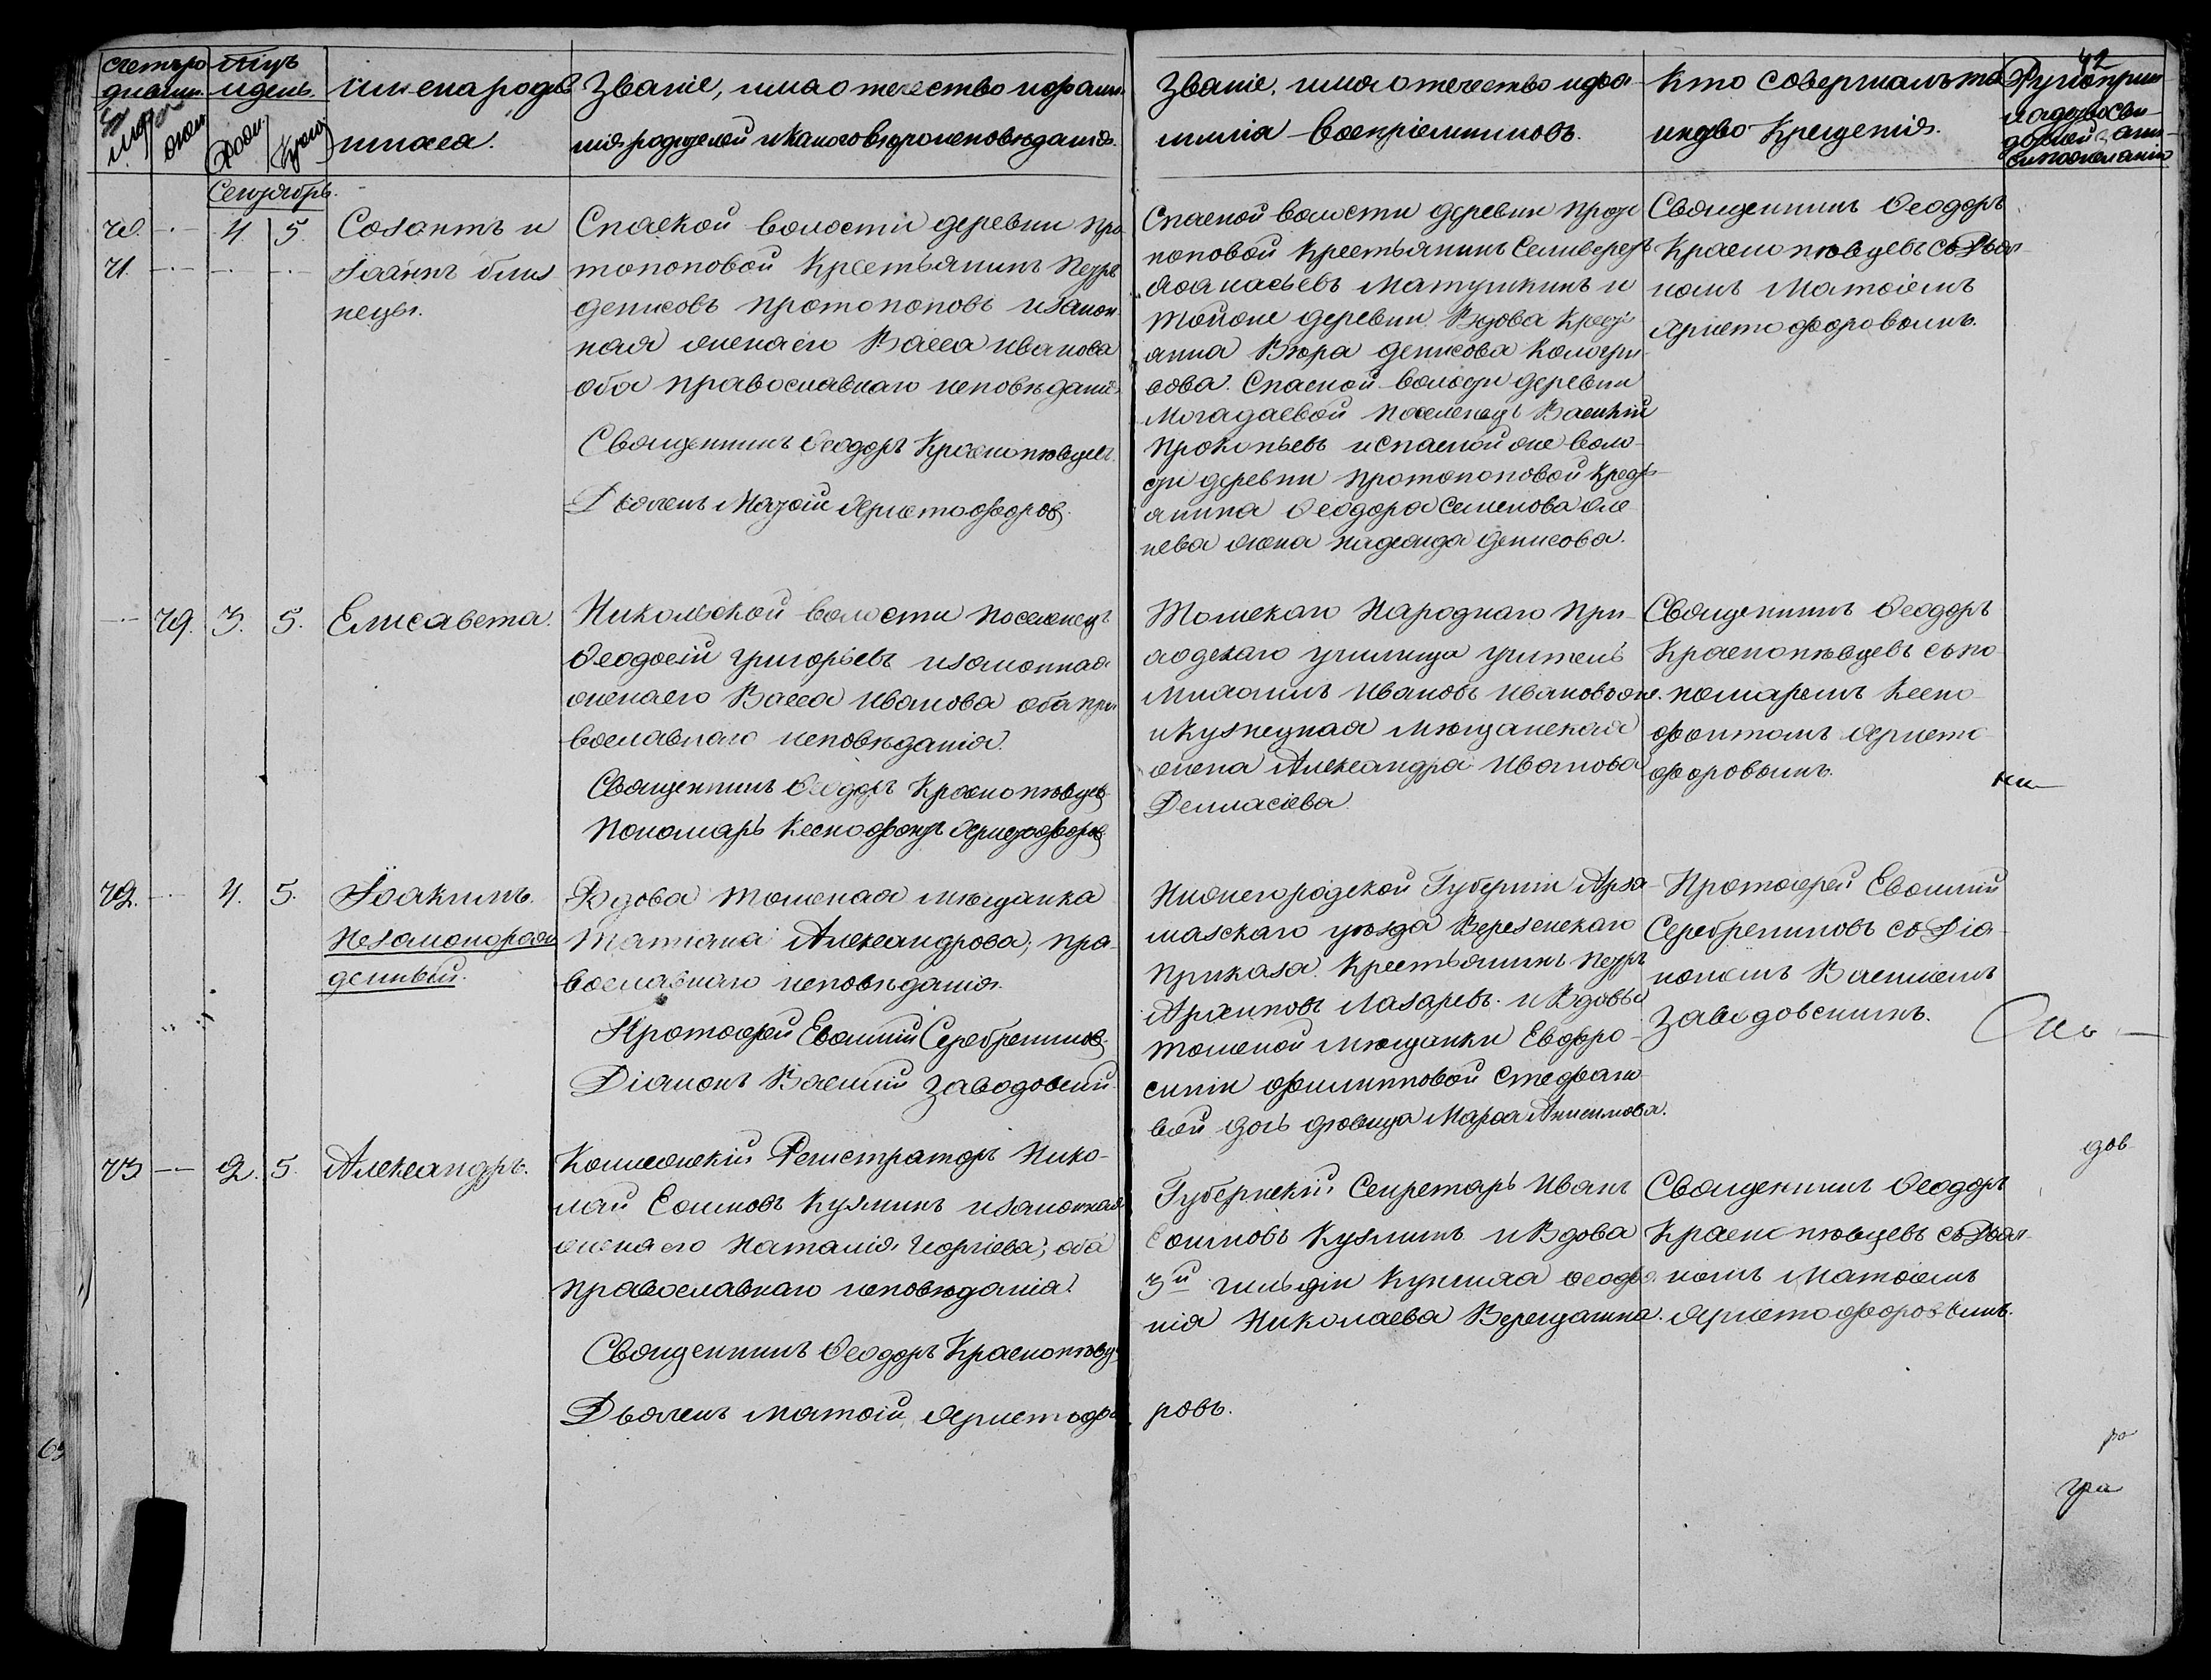 42
Счетъ ро
дивших.
Муж.
жен.
Мцъ
и день.
Рожд.
Крещ.
Имена родив
шихся.
Званіе, имя отечество и фами
лія родителей и какого вѣроисповѣданія.
Званіе, имя отечество и фа
милія воспріемниковъ.
Кто совершалъ та
инство крещенія.
Рукоприк
ладство сви
дѣтелей
Сентябрь.
70. 4. 5.
71.
Созонтъ и
Іоаннъ близ
нецы.
Спаской волости деревни Про
топоповой крестьянинъ Петръ
Денисовъ Протопоповъ и закон
ная жена его Васса Иванова
оба православнаго исповѣданія.
Священникъ Ѳеодоръ Краснопѣвцевъ.
Дьячекъ Матѳій Христофоровъ.
Спаской волости деревни Прото
поповой крестьянинъ Селиверстъ
Аѳанасьевъ Матушкинъ и
тойже деревни вдова кресть
янка Вѣра Денисова
Спаской волости деревни
Магадаевой поселенецъ Василій
Прокопьевъ и Спаской же воло
сти деревни Протопоповой крест
янина Ѳеодора Семенова
жена Надежда Денисова.
Священникъ Ѳеодоръ
Краснопѣвцевъ съ Дьяч
комъ Матѳіемъ
Христофоровымъ.
79. 3. 5. Елисавета.
Никольской волости поселенецъ
Ѳеодосій Григорьевъ и законная
жена его Васса Иванова оба пра
вославнаго исповѣданія.
Священникъ Ѳеодоръ Краснопѣвцевъ
Пономарь Ксенофонтъ Христофоровъ
Томскаго Народнаго При
ходскаго училища учитель
Михаилъ Ивановъ
и Кузнецкая мѣщанская
жена Александра Иванова
Священникъ Ѳеодоръ
Краснопѣвцевъ съ по
номаремъ Ксено
фонтомъ Христо
форовымъ.
72. 4. 5. Іоакимъ.
Незаконорож
денный.
Вдова томская мѣщанка
Татіана Александрова; пра
вославнаго исповѣданія.
Протоіерей Евѳимій Серебрениковъ
Діаконъ Василій Заводовскій.
Нижегородской Губерніи Арза
маскаго уѣзда
Приказа крестьянинъ Петръ
Архиповъ Лазаревъ и вдовы
томской мѣщанки Евфро
синіи Филипповой Стефано
вой дочь дѣвица Марѳа Анисимова.
Протоіерей Евѳимій
Серебрениковъ съ Діа
кономъ Василіемъ
Заводовскимъ.
73 2. 5. Александръ.
Коллежскій Регистраторъ Нико
лай Кузминъ и законная
жена его Наталія Георгіева; оба
православнаго исповѣданія.
Священникъ Ѳеодоръ Краснопѣвц
Дьячекъ Матѳій Христофо
ровъ.
Губернскій Секретарь Иванъ
Кузминъ и вдова
3й гильдіи купчиха
нія Николаева Верещагина.
Священникъ Ѳеодоръ
Краснопѣвцевъ съ Дьяч
комъ Матѳіемъ
Христофоровымъ.
дов
ро